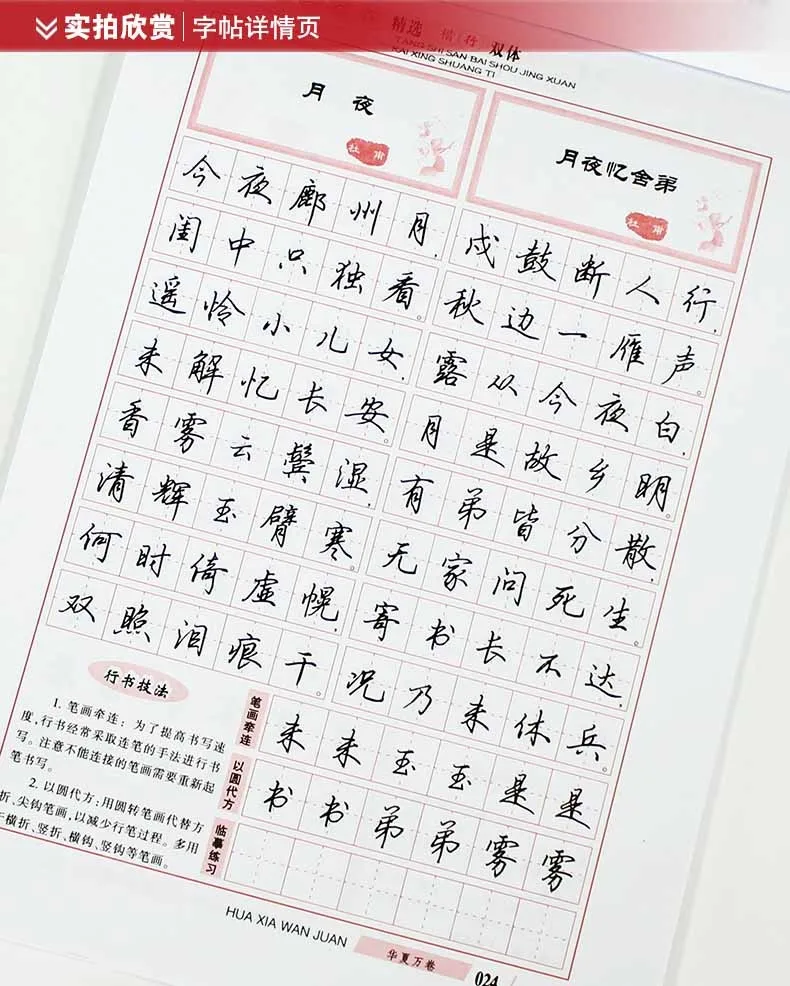 实拍欣赏 字帖详情页
精选 楷 行 双体
TANG SHI SAN BAI SHOU JING XUAN
KAI XING SHUANG TI
月夜
杜甫
今夜鄜州月,
闺中只独看。
遥怜小儿女,
未解忆长安。
香雾云鬓湿,
清辉玉臂寒。
何时倚虚幌,
双照泪痕干。
月夜忆舍弟
杜甫
戍鼓断人行,
秋边一雁声。
露从今夜白,
月是故乡明。
有弟皆分散,
无家问死生。
寄书长不达,
况乃未休兵。
行书技法
1. 笔画牵连:为了提高书写速
度,行书经常采取连笔的手法进行书
写。注意不能连接的笔画需要重新起
笔书写。
2. 以圆代方:用圆转笔画代替方
折、尖钩笔画,以减少行笔过程。多用
于横折、竖折、横钩、竖钩等笔画。
笔画牵连
未未玉玉是是
以圆代方
书书弟弟雾雾
临摹练习
HUA XIA WAN JUAN
华夏万卷
024